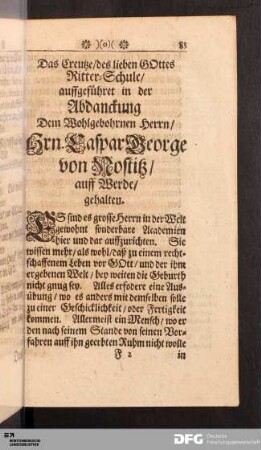 )(o)( 83
Das Creutze/des lieben GOttes
Ritter-Schule/
auffgeführet in der
Abdanckung
Dem Wohlgebohrnen Herrn/
Hrn. Caspar George
von Nostitz/
auff Werde/
gehalten.
ES sind es grosse Herrn in der Welt
gewohnt sonderbare Academien
hier und dar auffzurichten. Sie
wissen mehr/als wohl/daß zu einem recht-
schaffenem Leben vor GOtt/ und der ihm
ergebenen Welt/ bey weiten die Geburth
nicht gnug sey. Alles erfodere eine Aus-
übung/ wo es anders mit demselben solle
zu einer Geschicklichkeit/ oder Fertigkeit
kommen. Allermeist ein Mensch/ wo er
den nach seinem Stande von seinen Vor-
fahren auff ihn geerbten Ruhm nicht wolle
F 2 in
DFG Deutsche
Forschungsgemeinschaft